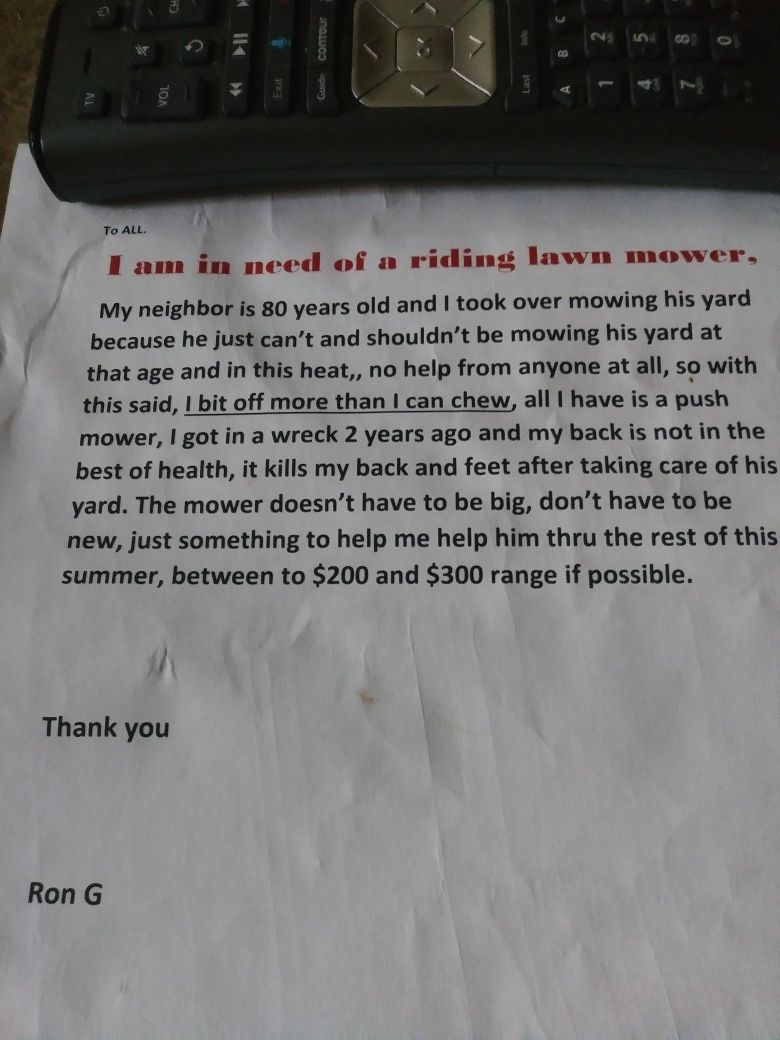 TV
VOL
CH
Exit
Guide
contour
OK
Last
Info
A
B
C
1
2
4
5
7
8
0
To ALL.
I am in need of a riding lawn mower,
My neighbor is 80 years old and I took over mowing his yard
because he just can't and shouldn't be mowing his yard at
that age and in this heat,, no help from anyone at all, so with
this said, I bit off more than I can chew, all I have is a push
mower, I got in a wreck 2 years ago and my back is not in the
best of health, it kills my back and feet after taking care of his
yard. The mower doesn't have to be big, don't have to be
new, just something to help me help him thru the rest of this
summer, between to $200 and $300 range if possible.
Thank you
Ron G